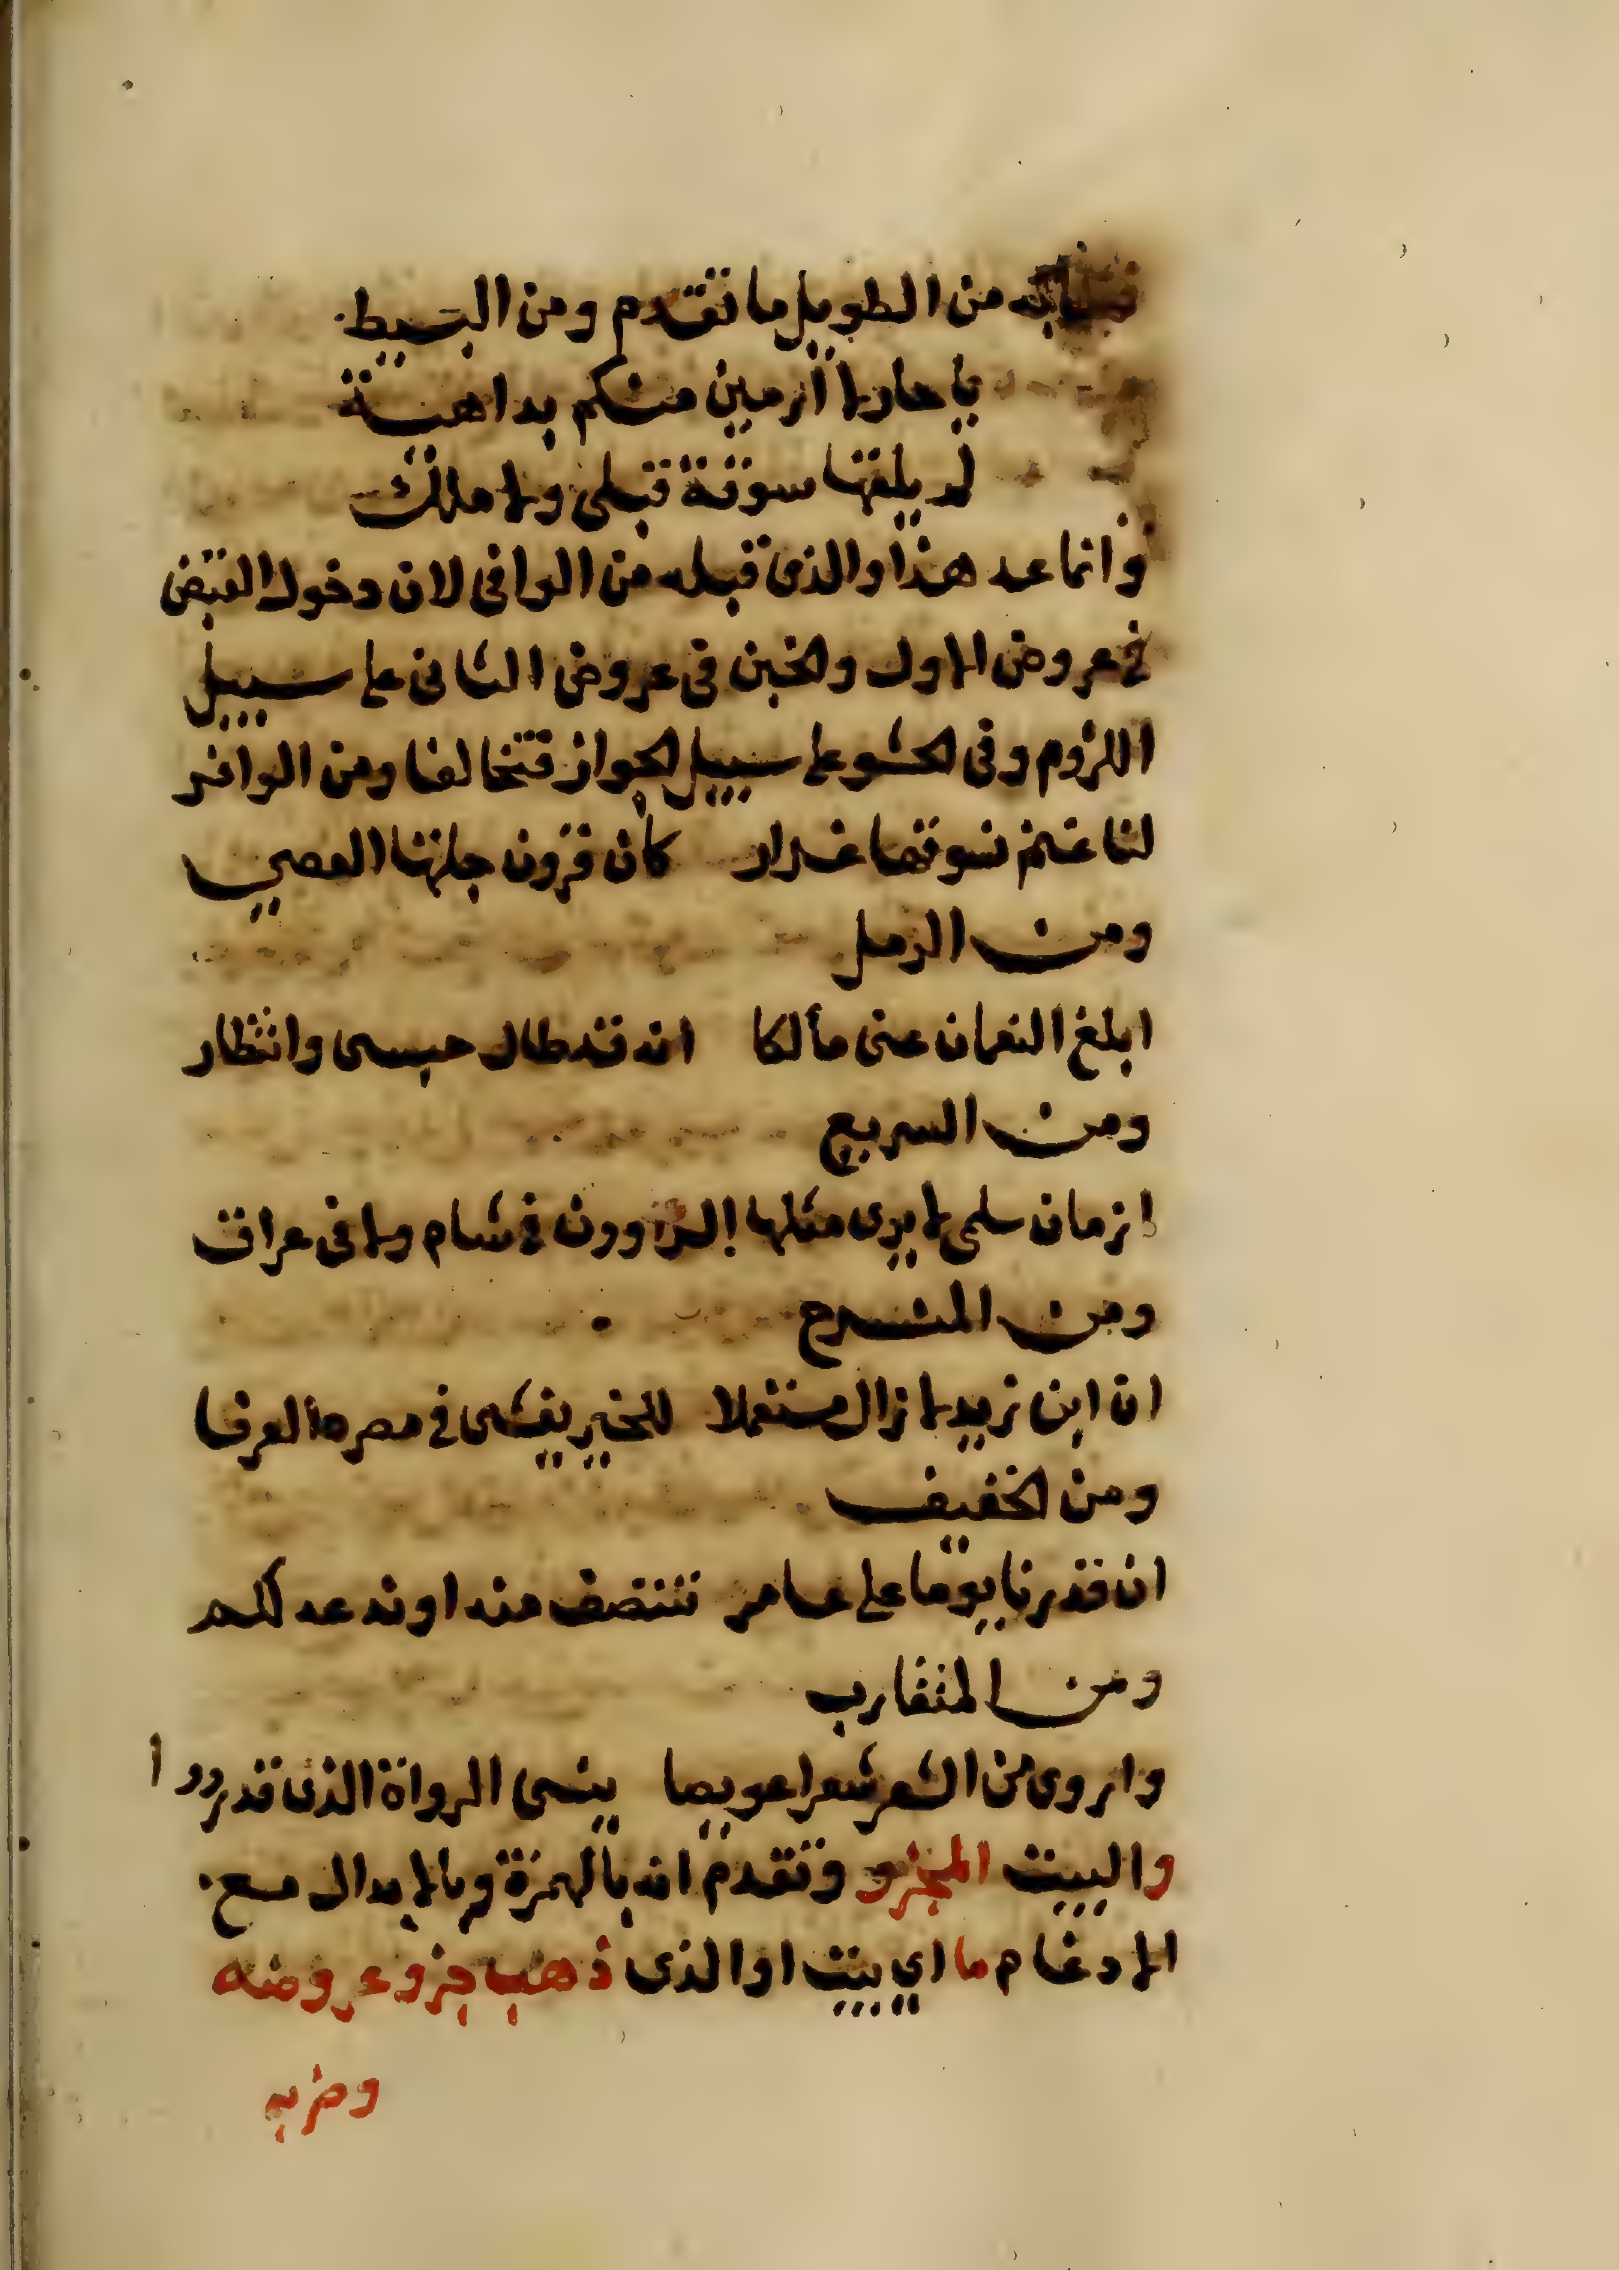 من الطويل ما تقدم ومن البسيط
يا حار لا ارمين منكم بداهية
لم يلقها سوقة قبلى ولا ملك
وانما عد هذا والذى قبله من الوافى لان دخول القبض
فى عروض الاول والخبن فى عروض الثانى على سبيل
اللزوم وفى الحشو على سبيل الجواز فتخالفا ومن الوافر
لنا غنم نسوقها غزار كان قرون جلتها العصي
ومن الرمل
ابلغ النعمان عنى مألكا انه قد طال حبسى وانتظار
ومن السريع
ازمان سلمى لا يرى مثلها الراوون فى شام ولا فى عراق
ومن المنسرح
ان ابن زيد لا زال مستعملا للخير يفشى فى مصره العرفا
ومن الخفيف
ان قدرنا يوما على عامر ننتصف منه او ندعه لكم
ومن المتقارب
واروى من الشعر شعرا عويصا ينسى الرواة الذى قد رووا
والبيت المجزو وتقدم انه بالهمزة وبالابدال مع
الادغام ما اي بيت او الذى ذهب جزو عروضه
وضربه